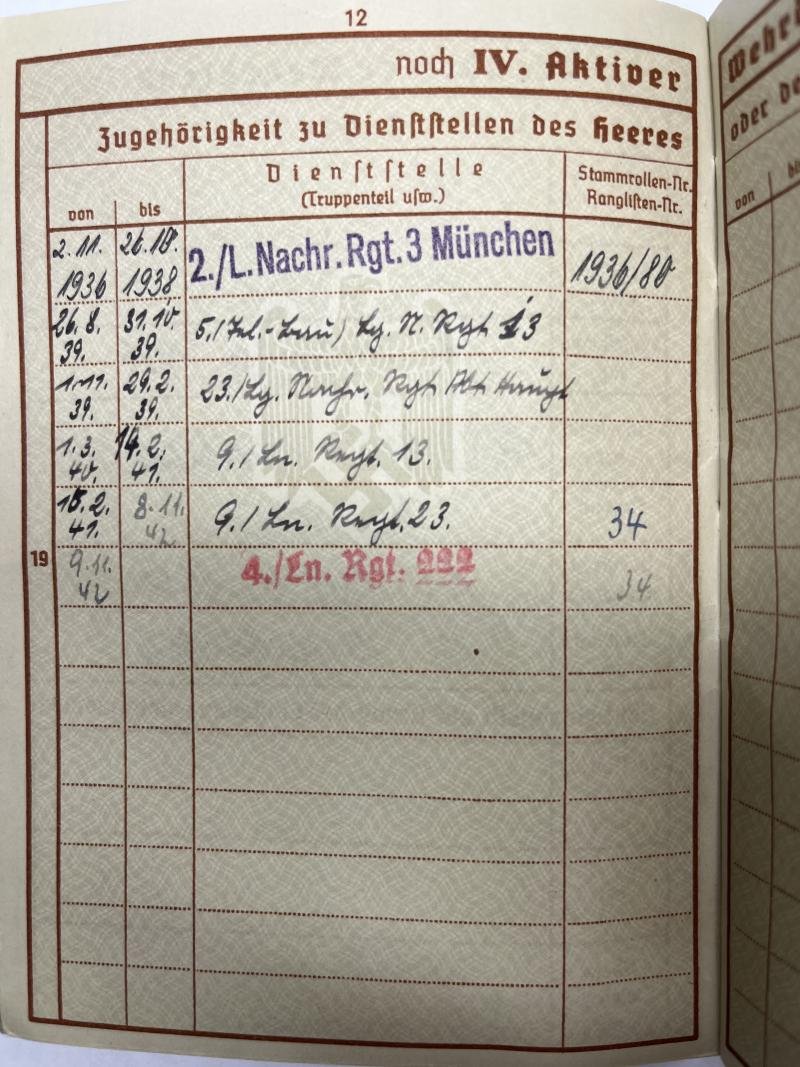 12
noch IV. Aktiver
Zugehörigkeit zu Dienststellen des Heeres
von
bis
Dienststelle
(Truppenteil usw.)
Stammrollen-Nr.
Ranglisten-Nr.
2.11.
1936
26.10.
1938
2./L.Nachr.Rgt.3 München
1936/80
26.8.
39.
31.10.
39.
5./(Tel.-Bau) Lg. N. Rgt. 13
1.11.
39.
29.2.
39.
23./Lg. Nachr. Rgt
1.3.
40.
14.2.
41.
9./Ln. Regt. 13.
15.2.
41.
8.11.
42
9./Ln. Regt. 23.
34
19
9.11.
42
4./Ln. Rgt. 222
34
Wehr
oder de
von
bi